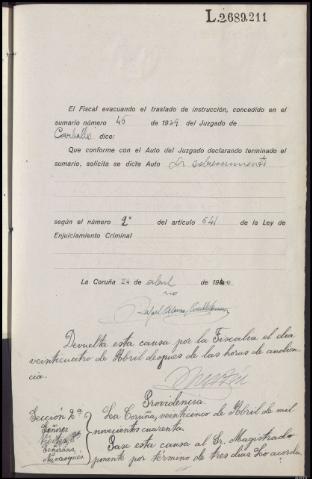 L.2689.211
El Fiscal evacuando el traslado de instrucción, concedido en el
sumario número 45 de 1939 del Juzgado de
Carballo dice:
Que conforme con el Auto del Juzgado declarando terminado el
sumario, solicita se dicte Auto de sobreseimiento
según el número 2º del artículo 641 de la Ley de
Enjuiciamiento Criminal
La Coruña 24 de abril de 1940
Devuelta esta causa por la Fiscalia el dia
veinticuatro de Abril despues de las horas de audien
cia.
Providencia
Seccion 2ª La Coruña, veinticinco de Abril de mil
Señores novecientos cuarenta.
Pase esta causa al Sr. Magistrado
ponente por término de tres dias. Lo acorda